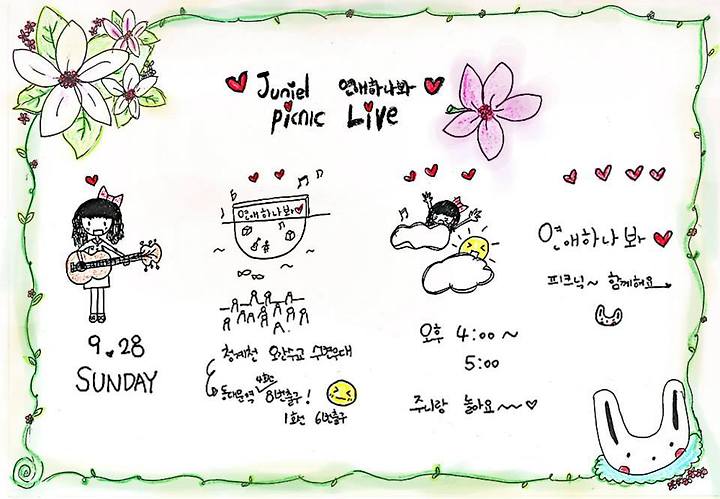 Juniel 연애하나봐
picnic Live
연애하나봐
9.28
SUNDAY
청계천 오간수교 수변무대
동대문역 4호선 8번출구!
1호선 6번출구
오후 4:00~
5:00
주니랑 놀아요~~
연애하나봐
피크닉~ 함께해요